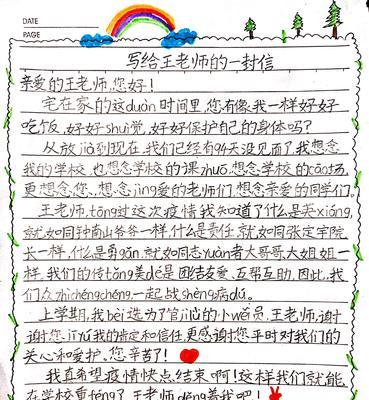 DATE
PAGE
写给王老师的一封信
亲爱的王老师,您好!
宅在家的这duàn时间里,您有像我一样好好
吃饭,好好shuì觉,好好保护自己的身体吗?
从放jià到现在,我们已经有94天没见面了,我想念
我的学校,也想念学校的课zhuō,想念学校的cāo场,
更想念您、想念jìng爱的老师们,想念亲爱的同学们。
王老师,tōng过这次疫情我知道了什么是英xióng,
就如同钟南山爷爷一样,什么是责任,就如同张定宇院
长一样,什么是勇gǎn,就如同志yuàn者大哥哥、大姐姐一
样,我们的传tǒng美dé是团结友爱、互帮互助,因此,我
们众zhìchéngchéng,一起战shèng病dú。
上学期,我bèi选为了官jiā的小wěi员,王老师,谢
谢您jǐyǔ我的肯定和信任,更感谢您平时对我们的
关心和爱护,您辛苦了!
我真希望疫情快点结束啊!这样我们就能
在学校重féng了,王老师děng着我吧!